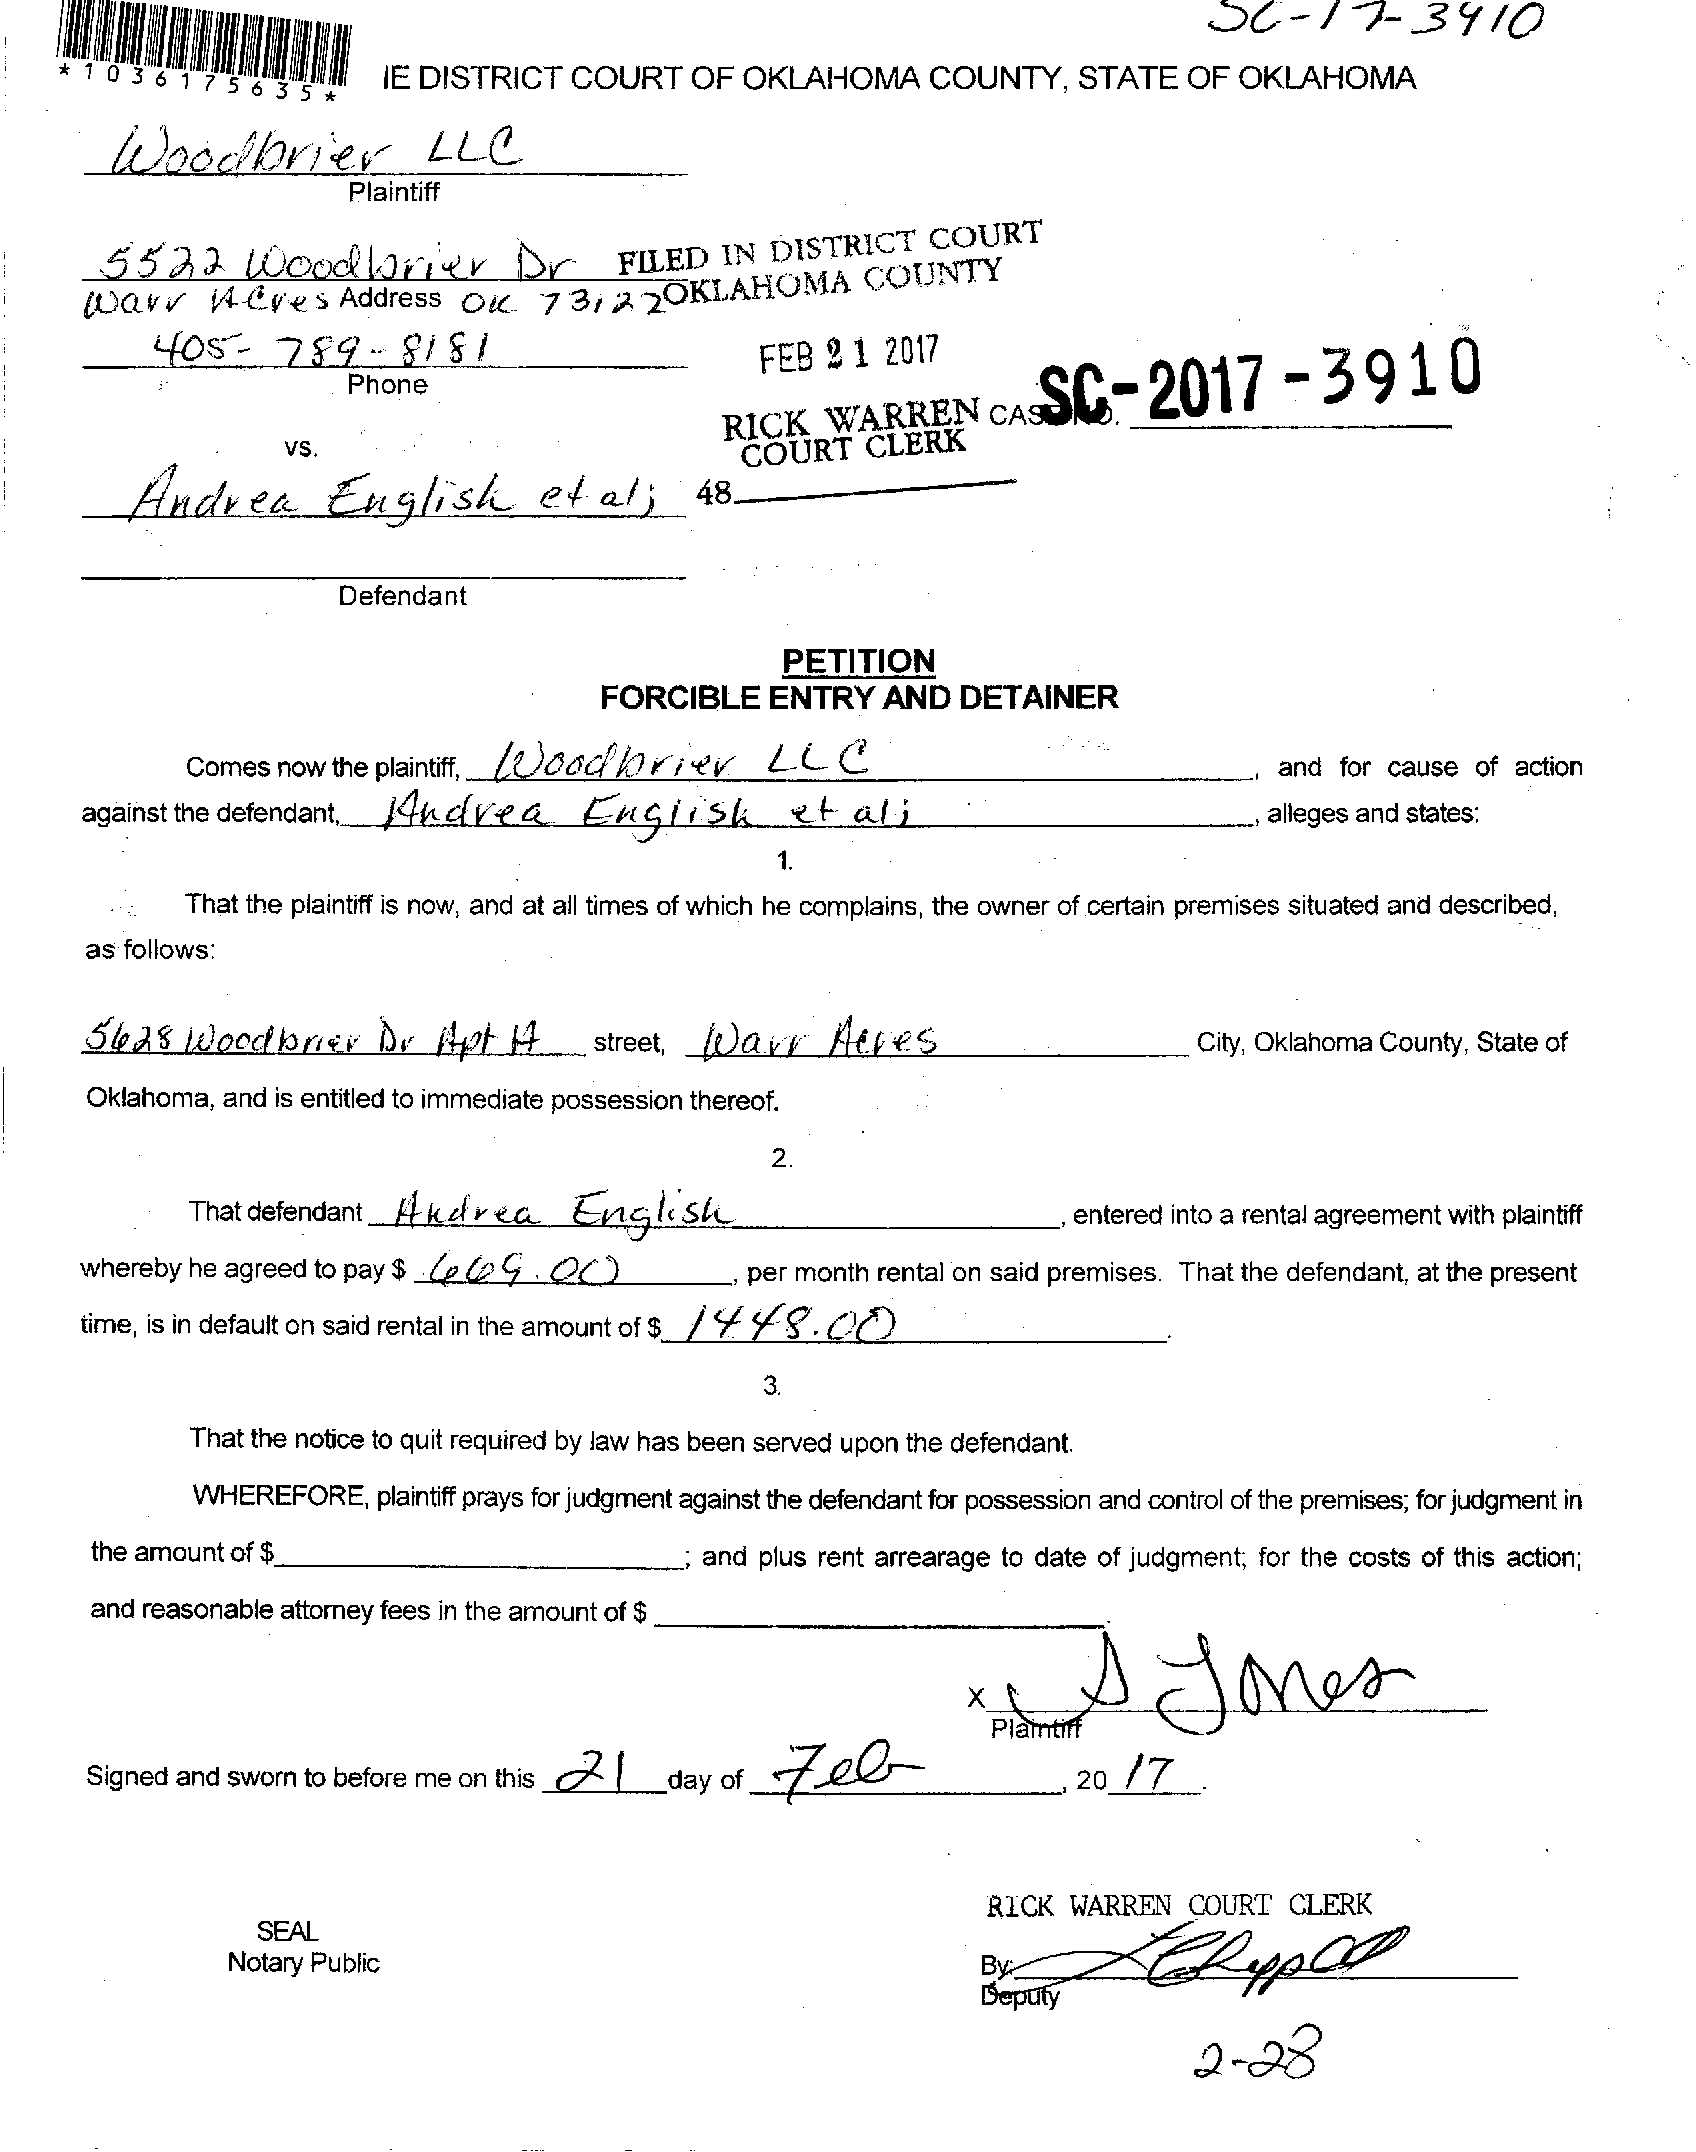 SC-17-3910
*1036175635*
IE DISTRICT COURT OF OKLAHOMA COUNTY, STATE OF OKLAHOMA
Woodbrier LLC
Plaintiff
5522 Woodbrier Dr
FILED IN DISTRICT COURT
OKLAHOMA COUNTY
Warr Acres Address OK 73122
405-789-8181
Phone
FEB 21 2017
SC-2017-3910
RICK WARREN
COURT CLERK
CASE NO.
vs.
Andrea English et al;
48
Defendant
PETITION
FORCIBLE ENTRY AND DETAINER
Comes now the plaintiff, Woodbrier LLC, and for cause of action
against the defendant, Andrea English et al;, alleges and states:
1.
That the plaintiff is now, and at all times of which he complains, the owner of certain premises situated and described,
as follows:
5628 Woodbrier Dr Apt A street, Warr Acres City, Oklahoma County, State of
Oklahoma, and is entitled to immediate possession thereof.
2.
That defendant Andrea English, entered into a rental agreement with plaintiff
whereby he agreed to pay $ 669.00, per month rental on said premises. That the defendant, at the present
time, is in default on said rental in the amount of $ 1448.00.
3.
That the notice to quit required by law has been served upon the defendant.
WHEREFORE, plaintiff prays for judgment against the defendant for possession and control of the premises; for judgment in
the amount of $; and plus rent arrearage to date of judgment; for the costs of this action;
and reasonable attorney fees in the amount of $
x S Jones
Plaintiff
Signed and sworn to before me on this 21 day of Feb, 20 17.
RICK WARREN COURT CLERK
SEAL
Notary Public
By:
Deputy
2-28